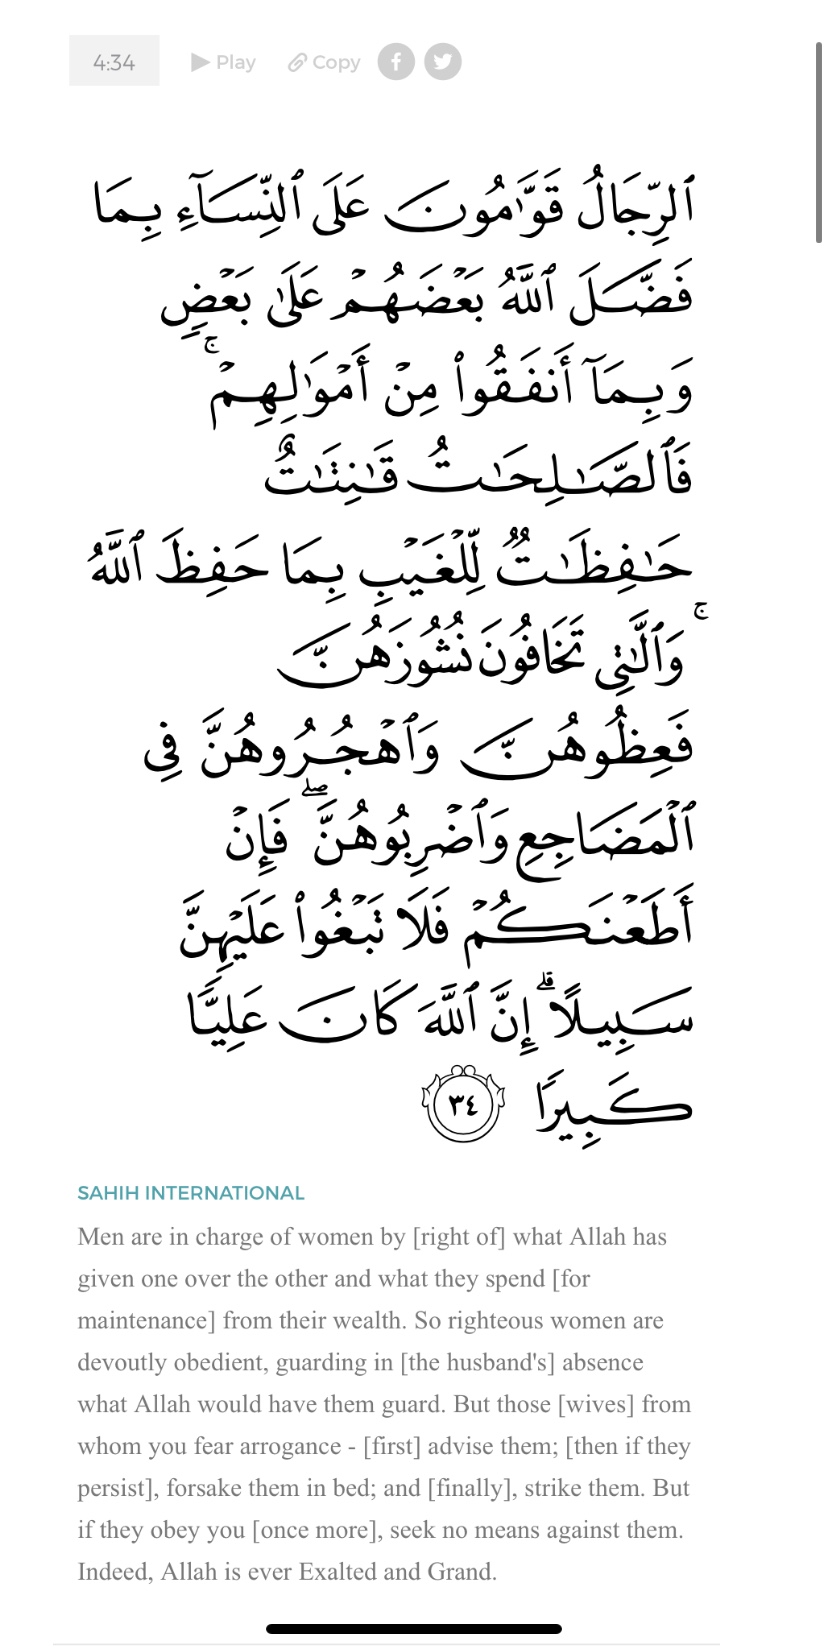 4:34 Play Copy
ٱلرِّجَالُ قَوَّٰمُونَ عَلَى ٱلنِّسَآءِ بِمَا
فَضَّلَ ٱللَّهُ بَعۡضَهُمۡ عَلَىٰ بَعۡضٖ
وَبِمَآ أَنفَقُواْ مِنۡ أَمۡوَٰلِهِمۡۚ
فَٱلصَّٰلِحَٰتُ قَٰنِتَٰتٌ
حَٰفِظَٰتٞ لِّلۡغَيۡبِ بِمَا حَفِظَ ٱللَّهُ
ۚ وَٱلَّٰتِي تَخَافُونَ نُشُوزَهُنَّ
فَعِظُوهُنَّ وَٱهۡجُرُوهُنَّ فِي
ٱلۡمَضَاجِعِ وَٱضۡرِبُوهُنَّۖ فَإِنۡ
أَطَعۡنَكُمۡ فَلَا تَبۡغُواْ عَلَيۡهِنَّ
سَبِيلًاۗ إِنَّ ٱللَّهَ كَانَ عَلِيّٗا
كَبِيرٗا ٣٤
SAHIH INTERNATIONAL
Men are in charge of women by [right of] what Allah has
given one over the other and what they spend [for
maintenance] from their wealth. So righteous women are
devoutly obedient, guarding in [the husband's] absence
what Allah would have them guard. But those [wives] from
whom you fear arrogance - [first] advise them; [then if they
persist], forsake them in bed; and [finally], strike them. But
if they obey you [once more], seek no means against them.
Indeed, Allah is ever Exalted and Grand.